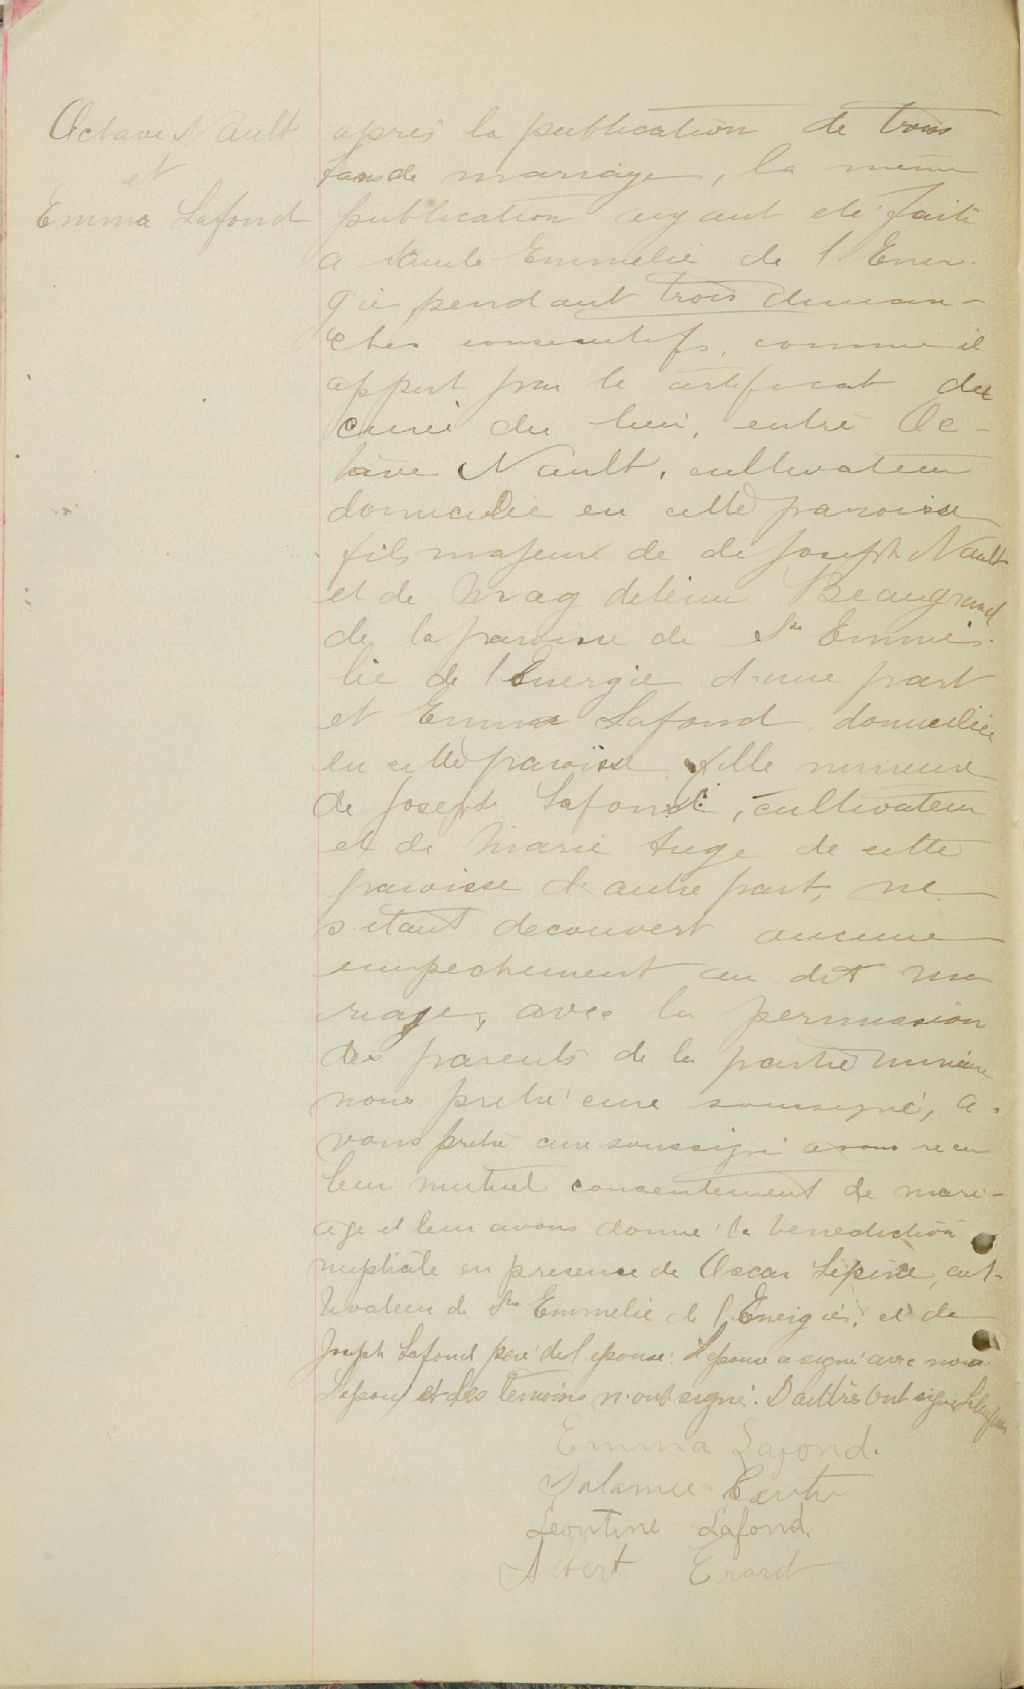 Octave Nault
et
Emma Lafond
après la publication de trois
bans de mariage, la même
publication ayant été faite
a Sainte Emmelie de l'Ener-
gie pendant trois diman-
ches consecutifs, comme il
appert par le certificat du
curé du lieu, entre Oc-
tave Nault, cultivateur
domicilie en cette paroisse
fils majeur de de Joseph Nault
et de Mag deleine Beaugrand
de la paroisse de Ste Emme-
lie de l'Energie d'une part
et Emma Lafond, domiciliée
en cette paroisse fille mineure
de Joseph Lafond, cultivateur
et de Marie Auge de cette
paroisse d'autre part, ne
s'etant decouvert aucune
empechement au dit ma
riage, avec la permission
des parents de la partie mineure
nous pretre cure soussigné, a-
vons pretre cure soussigné avons recu
leur mutuel consentement de mari-
age et leur avons donné la benediction
nuptiale en presence de Oscar Lépine, cul-
tivateur de Ste Emmelie de l'Energie, et de
Joseph Lafond père de l'epouse. L'epouse a signé avec nous.
L'epoux et les temoins n'ont signé. D'autres ont signé
Emma Lafond.
Leontine Lafond.
Albert Erard